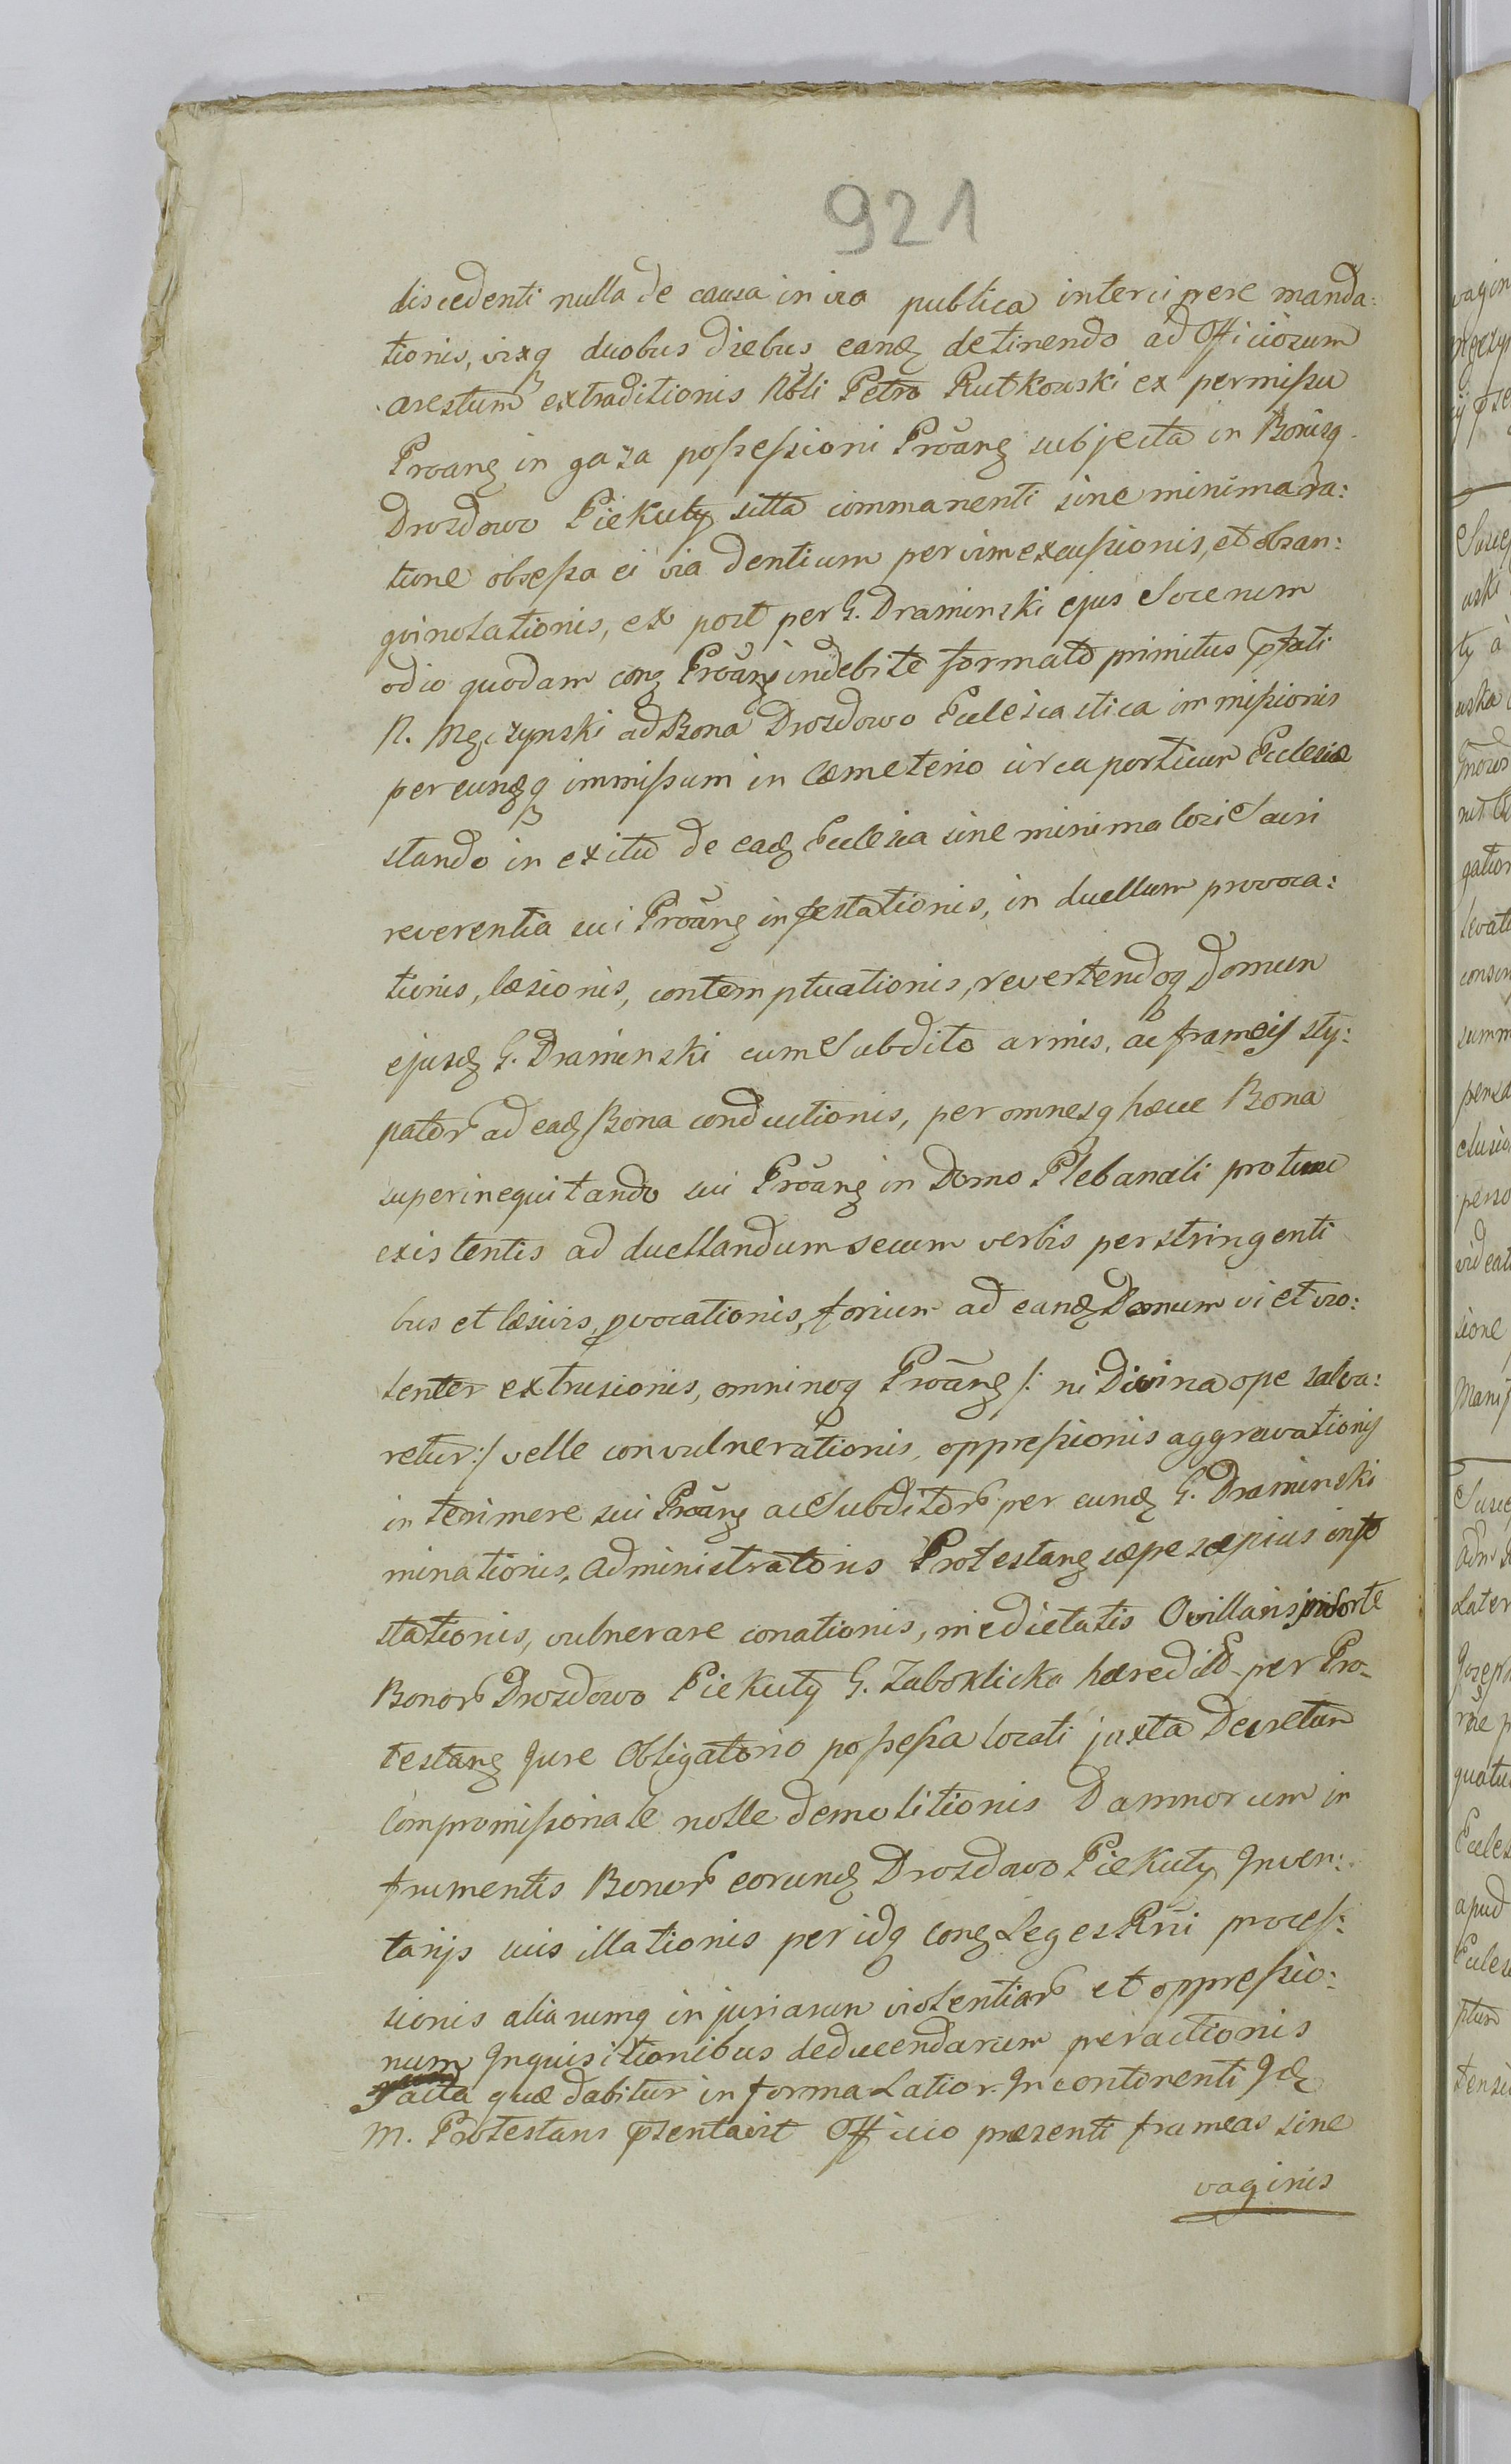 921
discedenti nulla de causa in via publica intercipere manda:
tionis, vixq duobus diebus eandȝ detinendo ad Officiosum
arestum extraditionis Nobli Petro Rutkowski ex permissu
Proangȝ in gaza possessioni Proãngȝ subjecta in Bonisq
Drozdowo Piekuty sitta commanenti sine minima ra:
tione obsessa ei via dentium per vim excussionis, et obsan:
guinolationis, ex post per G. Draminski ejus Socerum
odio quodam congȝ Proãngȝ indebite formato primitus pfati
N. Męczynski ad Bona Drozdowo Ecclesiastica immissionis
per eundȝq immissum in Cæmeterio circa porticum Ecclesiæ
stando in exitu de eadȝ Ecclesia sine minima loci Sacri
reverentia sui Proãngȝ infestationis, in duellum provoca:
tionis, læsionis, contemptuationis, revertendoq Domum
ejusdȝ G. Draminski cum Subdito armis, ac frameis sty:
pator ad eadȝ Bona conductionis, per omnesq hæce Bona
superinequitando sui Proãngȝ in Domo Plebanali protunc
existentis ad duellandum secum verbis perstringenti
bus et læsivis, pvocationis, forium ad eandȝ Domum vi et vio:
lenter extrusionis, omninoq Proãngȝ /: ni Divina ope salva:
retur:/ velle convulnerationis, oppressionis aggravationis
interimere sui Proãngȝ ac Subditor per eundȝ G. Draminski
minationis, administratoris Protestangȝ sæpe sæpius infe
stationis, vulnerare conationis, medietatis Ovillaris in sorte
Bonor Drozdowo Piekuty G. Zaboklicka hæredit per Pro-
testangȝ Jure Obligatorio possessa locati juxta Decretum
Compromissionale nolle demolitionis Damnorum in
frumentis Bonor eorundȝ Drozdowo Piekuty Inven:
tarijs suis illationis per idq congȝ Leges Rñi proces:
sionis aliarumq injuriarum violentiar et oppressio:
num Inquisitionibus deducendarum peractionis
Facta quæ dabitur in forma Latior. In continenti Idȝ
M. Protestans pßentavit Officio præsenti frameas sine
vaginis